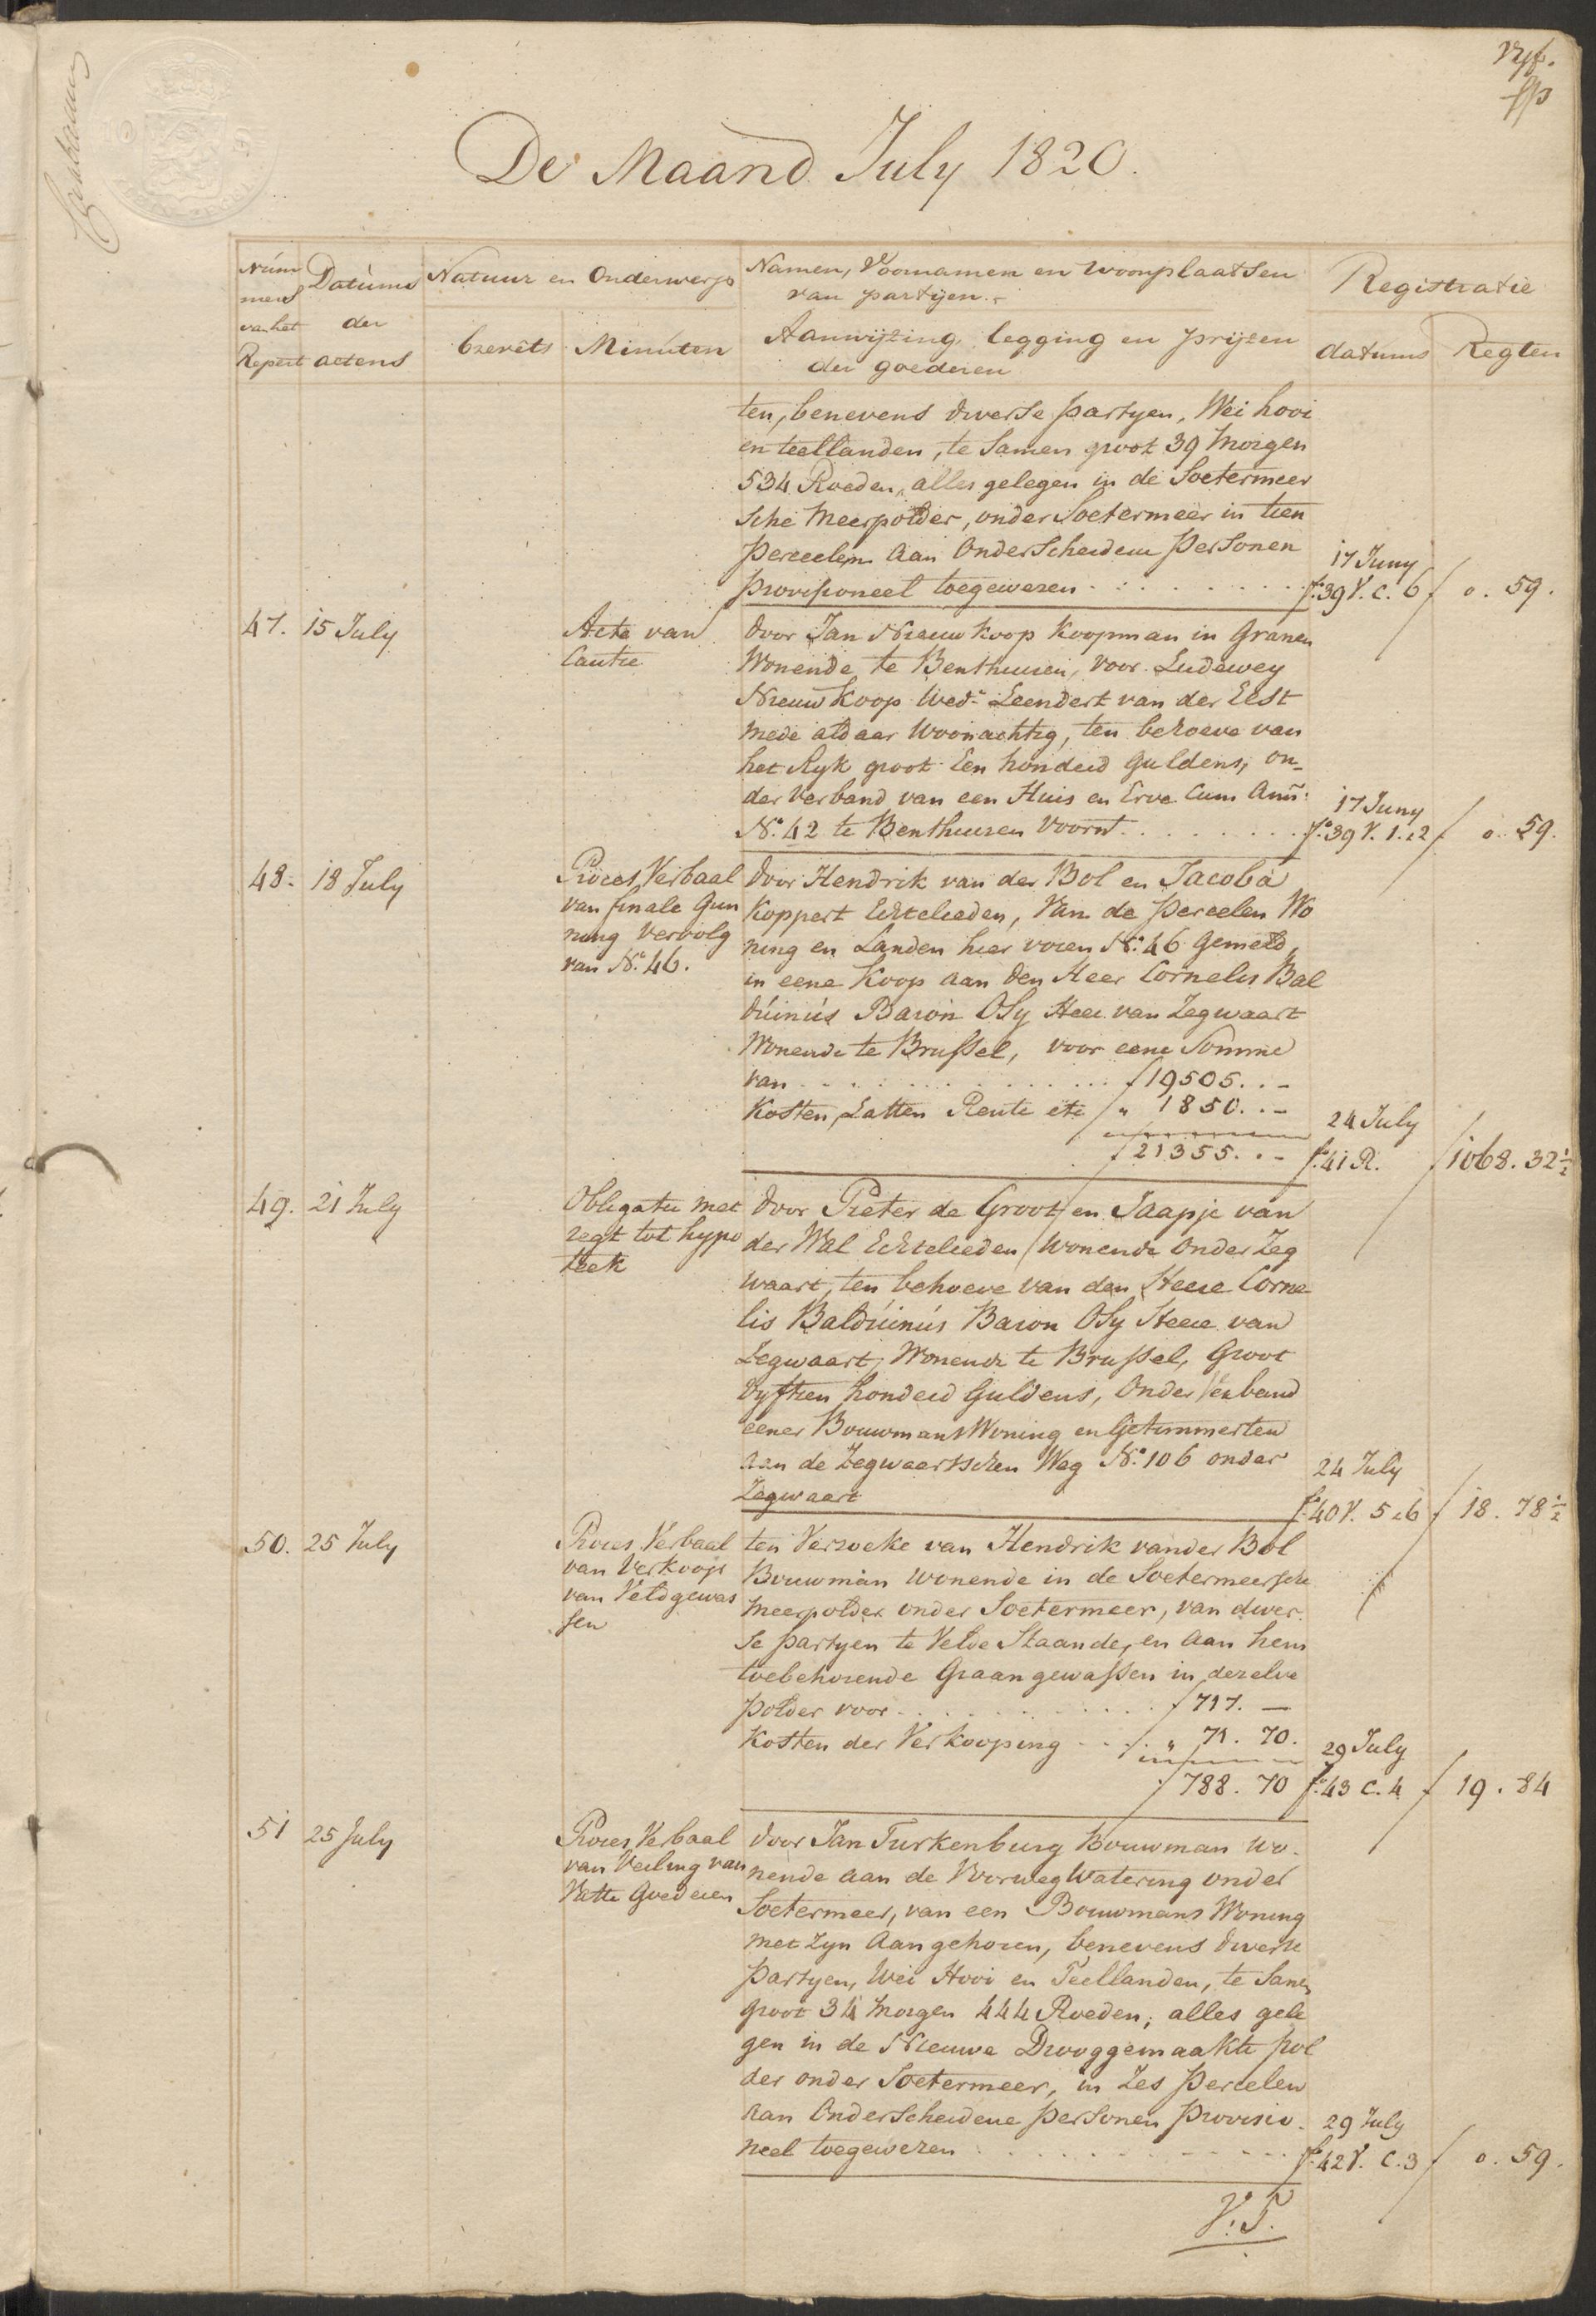 Vyf.
De Maand July 1820.
Núm Datúms Natuur en Onderwerp Namen, Voornamen en Woonplaatsen Registratie
mers van partijen.
van het der brevêts Minúten Aanwijzing, legging en prijzen datums Regten
Repert actens der goederen
ten, benevens diverse partyen, Wei hooi
en teellanden, te Samen groot 39 Morgen
534 Roeden, alles gelegen in de Soetermeer
sche Meerpolder, onder Soetermeer in tien
Perceelen aan Onderscheidene Personen 17 Juny
provisioneel toegewezen . . . . . . . fo. 39 V. c. 6 f 0. 59.
47. 15 July Acte van door Jan Nieuwkoop Koopman in Granen
Cautie Wonende te Benthuisen, voor Ludewey
Nieuwkoop Wede Leendert van der Elst
mede aldaar woonachtig, ten behoeve van
het Ryk groot Een honderd Guldens, on-
der Verband van een Huis en Erve Cum Ann:
No. 42 te Benthuizen voornt. . . . . . . 17 Juny fo. 39 V. 1. e2 f 0. 59.
48. 18 July Proces Verbaal door Hendrik van der Bol en Jacoba
van finale Gun Koppert Echtelieden, Van de Perceelen Wo
ning Vervolg ning en Landen hier voren No. 46 Gemeld,
van No. 46. in eene Koop aan den Heer Cornelis Bal
dúinús Baron OSy Heer van Zegwaart
Wonende te Brussel, voor eene Somme
van . . . . . . . . . . f 19505. . -
Kosten, Latten Rente etc " 1850. . - 24 July
f 21355. . - fo. 41 R. f 1068. 32½
49. 21 July Obligatie met door Pieter de Groot en Jaapje van
regt tot hypo der Wal Echtelieden / Wonende Onder Zeg
theek waart, ten behoeve van den Heere Corne
lis Baldúinús Baron OSy Heere van
Zegwaart, Wonende te Brussel, Groot
Vyftien honderd Guldens, Onder Verband
eener Bouwmans Woning en Getimmerten
aan de Zegwaartschen Weg No. 106 onder 24 July
Zegwaart fo. 40 V. 5 e6 f 18. 78½
50. 25 July Proces Verbaal ten Verzoeke van Hendrik vander Bol
van Verkoop Bouwman wonende in de Soetermeersche
van Veldgewas Meerpolder onder Soetermeer, van diver
sen se partyen te Velde Staande, en aan hem
toebehorende Graangewassen in dezelve
polder voor . . . . . . . f 717. —
Kosten der Verkooping . . . " 71. 70. 29 July
f 788. 70 fo. 43 C. 4 f 19. 84
51 25 July Proces Verbaal door Jan Turkenburg Bouwman wo-
van Veiling van nende aan de Voorweg Watering onder
Vatte Goederen Soetermeer, van een Bouwmans Woning
met zyn Aangehoren, benevens diverse
partyen, Wei Hooi en Teellanden, te Samen
groot 34 Morgen 444 Roeden; alles gele
gen in de Nieuwe Drooggemaakte pol
der onder Soetermeer, in Zes Percelen
aan Onderscheidene Personen Provisio- 29 July
neel toegewezen . . . . . . . fo. 42 V. C. 3 f 0. 59.
V. T.